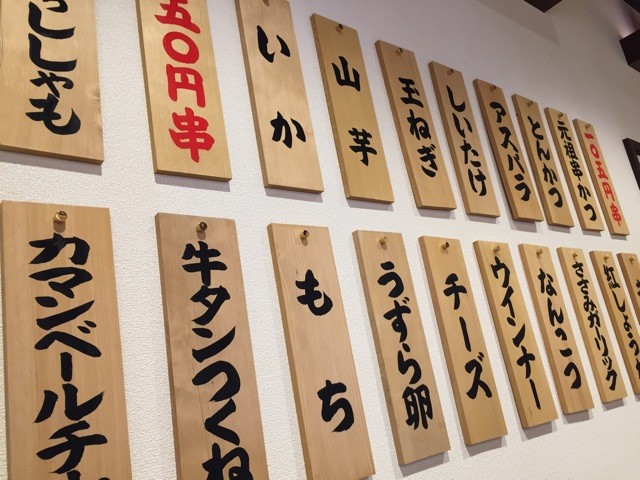 一〇五円串
元祖串かつ
とんかつ
アスパラ
しいたけ
玉ねぎ
山芋
いか
五〇円串
ししゃも
紅しょうが
ささみガリック
なんこつ
ウインナー
チーズ
うずら卵
もち
牛タンつくね
カマンベールチ